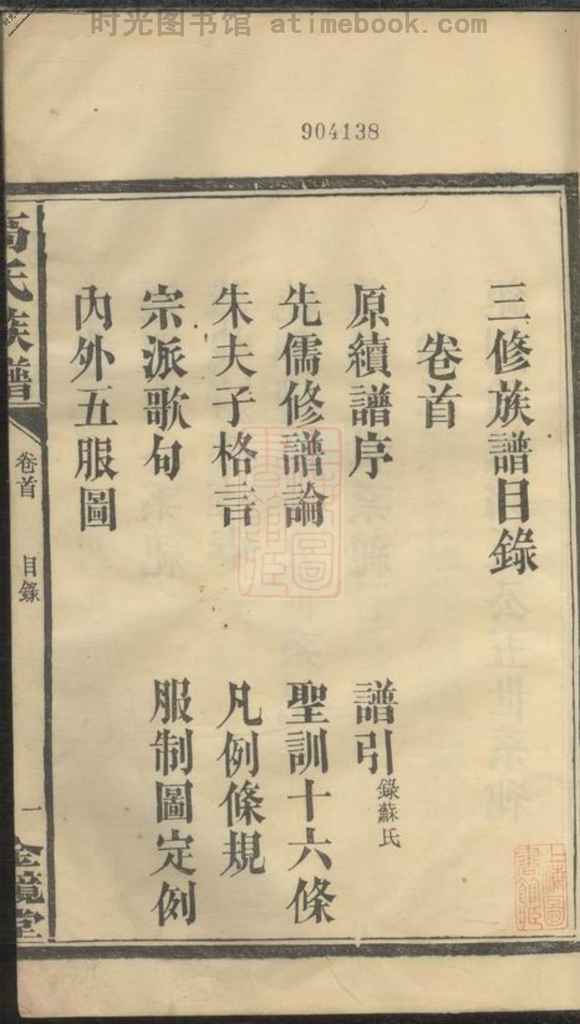 时光图书馆 atimebook.com
904138
三修族譜目錄
卷首
原續譜序 譜引 錄蘇氏
先儒修譜論 聖訓十六條
朱夫子格言 凡例條規
宗派歌句 服制圖定例
內外五服圖
高氏族譜 卷首 目錄 一 金鏡堂